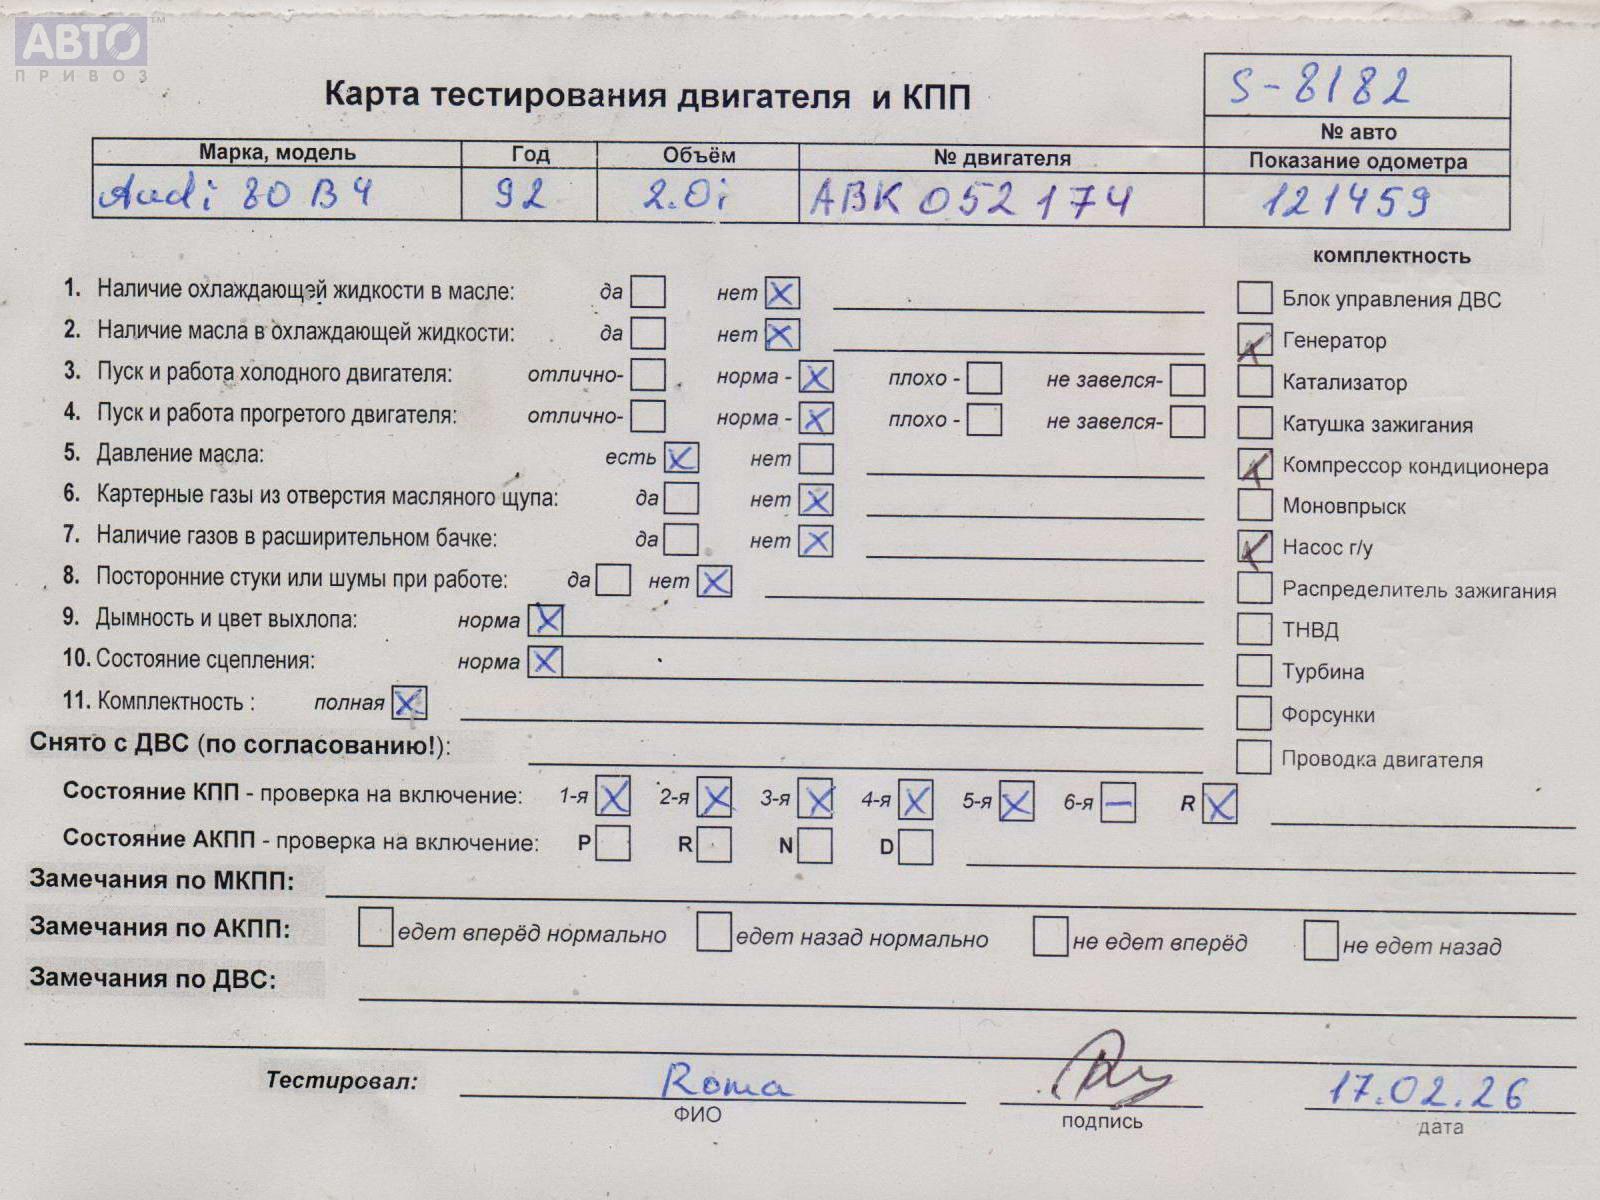 АВТО™
ПРИВОЗ
Карта тестирования двигателя и КПП
S-8182
№ авто
Марка, модель Год Объём № двигателя Показание одометра
Audi 80 B4 92 2.0i ABK 052174 121459
комплектность
1. Наличие охлаждающей жидкости в масле: да нет X
2. Наличие масла в охлаждающей жидкости: да нет X
3. Пуск и работа холодного двигателя: отлично- норма - X плохо - не завелся-
4. Пуск и работа прогретого двигателя: отлично- норма - X плохо - не завелся-
5. Давление масла: есть X нет
6. Картерные газы из отверстия масляного щупа: да нет X
7. Наличие газов в расширительном бачке: да нет X
8. Посторонние стуки или шумы при работе: да нет X
9. Дымность и цвет выхлопа: норма X
10. Состояние сцепления: норма X
11. Комплектность : полная X
Блок управления ДВС
X Генератор
Катализатор
Катушка зажигания
X Компрессор кондиционера
Моновпрыск
X Насос г/у
Распределитель зажигания
ТНВД
Турбина
Форсунки
Проводка двигателя
Снято с ДВС (по согласованию!):
Состояние КПП - проверка на включение: 1-я X 2-я X 3-я X 4-я X 5-я X 6-я — R X
Состояние АКПП - проверка на включение: P R N D
Замечания по МКПП:
Замечания по АКПП: едет вперёд нормально едет назад нормально не едет вперёд не едет назад
Замечания по ДВС:
Тестировал: Roma 17.02.26
ФИО подпись дата